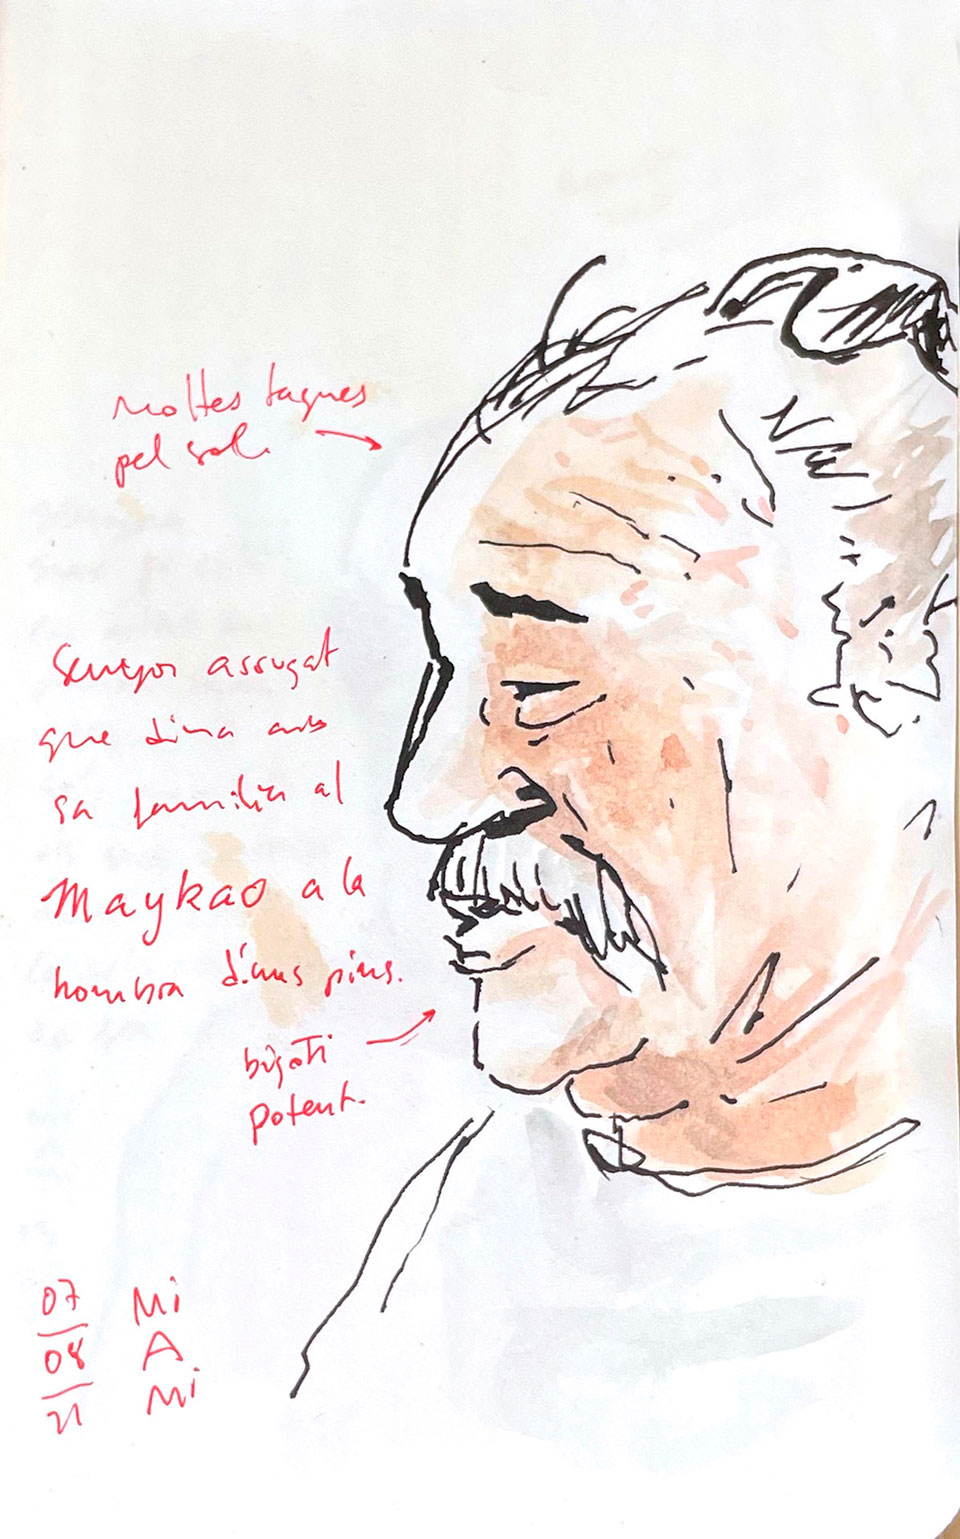 Moltes taques
pel sol.
Senyor arrugat
que dina amb
sa familia al
Maykao a la
hombra d'uns pins.
bigoti
potent.
07 Mi
08 A
21 Mi